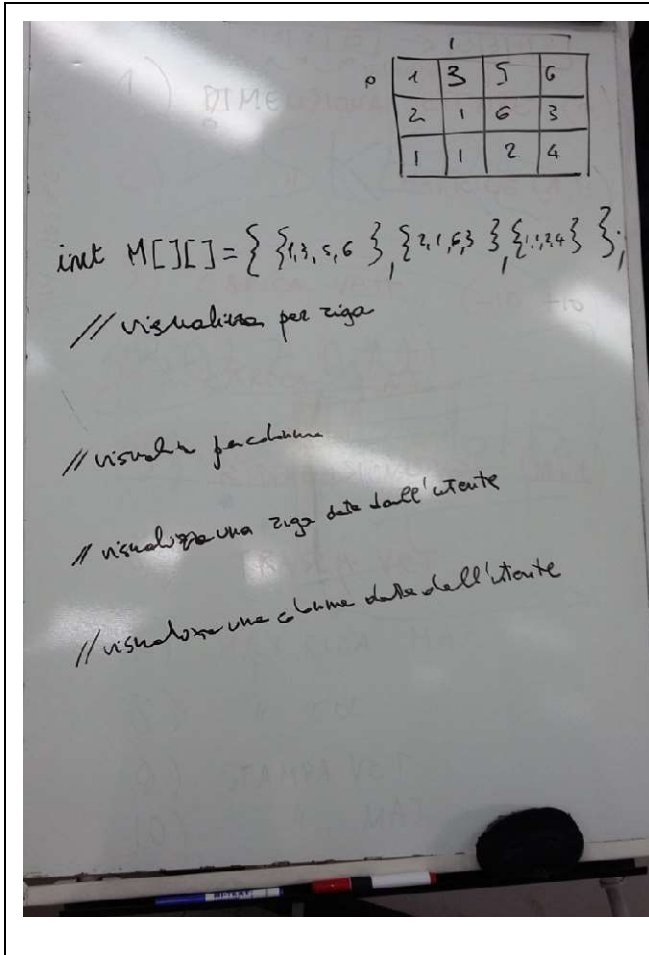 1
0 1 3 5 6
2 1 6 3
1 1 2 4
int M[][]={ {1,3,5,6 }, {2,1,6,3 }, {1,1,2,4} };
// visualizza per riga
// visualizza per colonna
// visualizza una riga data dall'utente
// visualizza una colonna data dall'utente